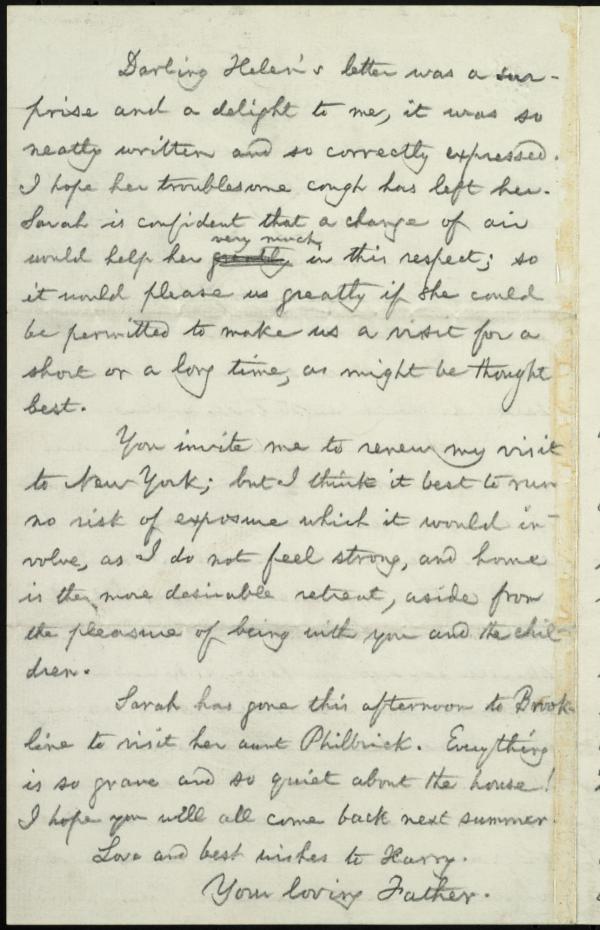 Darling Helen's letter was a sur-
prise and a delight to me, it was so
neatly written and so correctly expressed.
I hope her troublesome cough has left her.
Sarah is confident that a change of air
very much
would help her greatly in this respect; so
it would please us greatly if she could
be permitted to make us a visit for a
short or a long time, as might be thought
best.
You invite me to renew my visit
to New York; but I think it best to run
no risk of exposure which it would in-
volve, as I do not feel strong, and home
is the more desirable retreat, aside from
the pleasure of being with you and the chil-
dren.
Sarah has gone this afternoon to Brook-
line to visit her aunt Philbrick. Everything
is so grave and so quiet about the house!
I hope you will all come back next summer.
Love and best wishes to Harry.
Your loving Father.